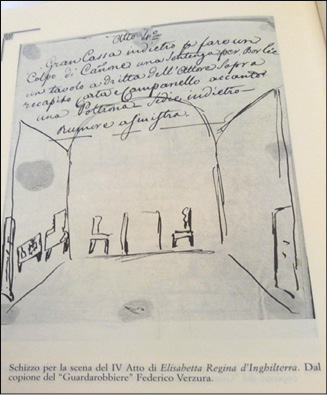 Atto 4to
Gran Cassa indietro p fare un
Colpo di Canone una Sentenza per Borlei
un tavolo a dritta dell'Attore Sopra
recapito Carta e Campanello accanto
una Poltrona Sedie indietro
Rumore a sinistra.
Schizzo per la scena del IV Atto di Elisabetta Regina d'Inghilterra. Dal
copione del "Guardarobbiere" Federico Verzura.